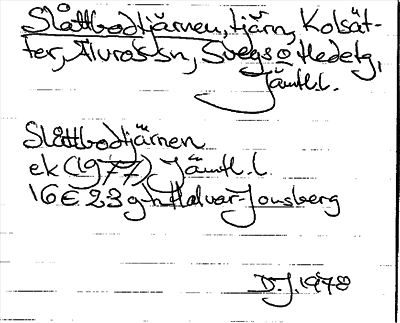 Slåttbodtjärnen, tjärn, Kolsät-
ter, Älvros sn, Svegs o Hedetg,
Jämtl.l.
Slåttbodtjärnen
ek (1977) Jämtl.l.
16E 2-3 g-h Halvar-Jonsberg
D.J. 1978